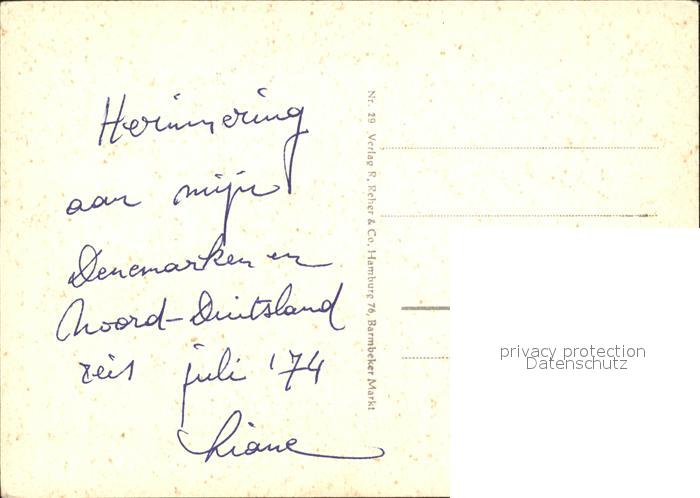 Herinnering
aan mijn
Denemarken en
Noord-Duitsland
reis juli '74
Liane
Nr. 29 Verlag R. Reher & Co., Hamburg 76, Barmbeker Markt
privacy protection
Datenschutz